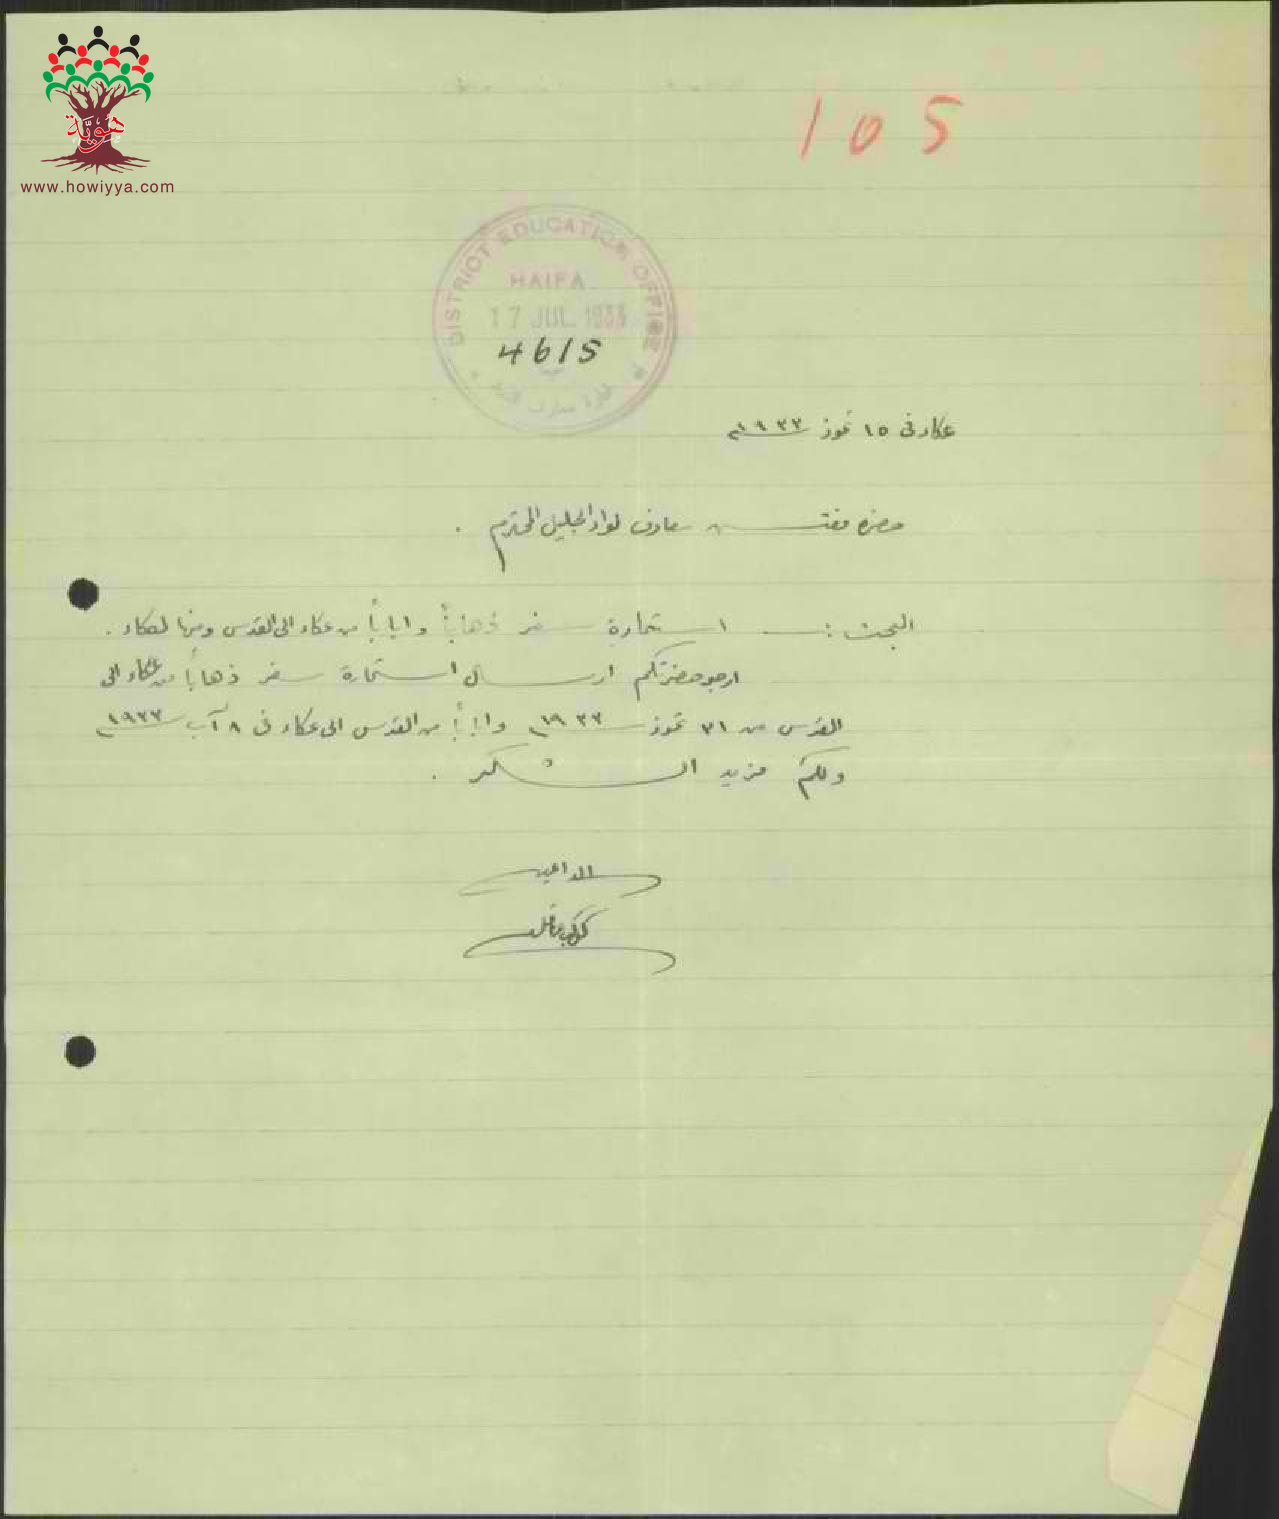 هوية
www.howiyya.com
105
DISTRICT EDUCATION OFFICE
HAIFA
17 JUL 1933
4615
عكا في ١٥ تموز ١٩٣٣م
حضرة مفتش معارف لواء الجليل المحترم .
البحث :ــ استمارة سفر ذهاباً واياباً من عكاء الى القدس ومنها لعكاء .
ارجو حضرتكم ارسال استمارة سفر ذهاباً من عكاء الى
القدس من ٣١ تموز ١٩٣٣م واياباً من القدس الى عكاء في ٨ آب ١٩٣٣م
ولكم مزيد الشكر .